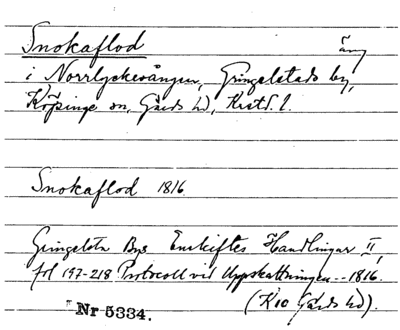 Snokaflod äng
i Norrlyckevången, Gringelstads by,
Köpinge sn, Gärds hd, Krist. l.
Snokaflod 1816
Gringelsta Bys Enskiftes Handlingar II,
fol 197-218 Protocoll vid Uppskattningen -- 1816.
(K10 Gärds hd).
Nr 5334.